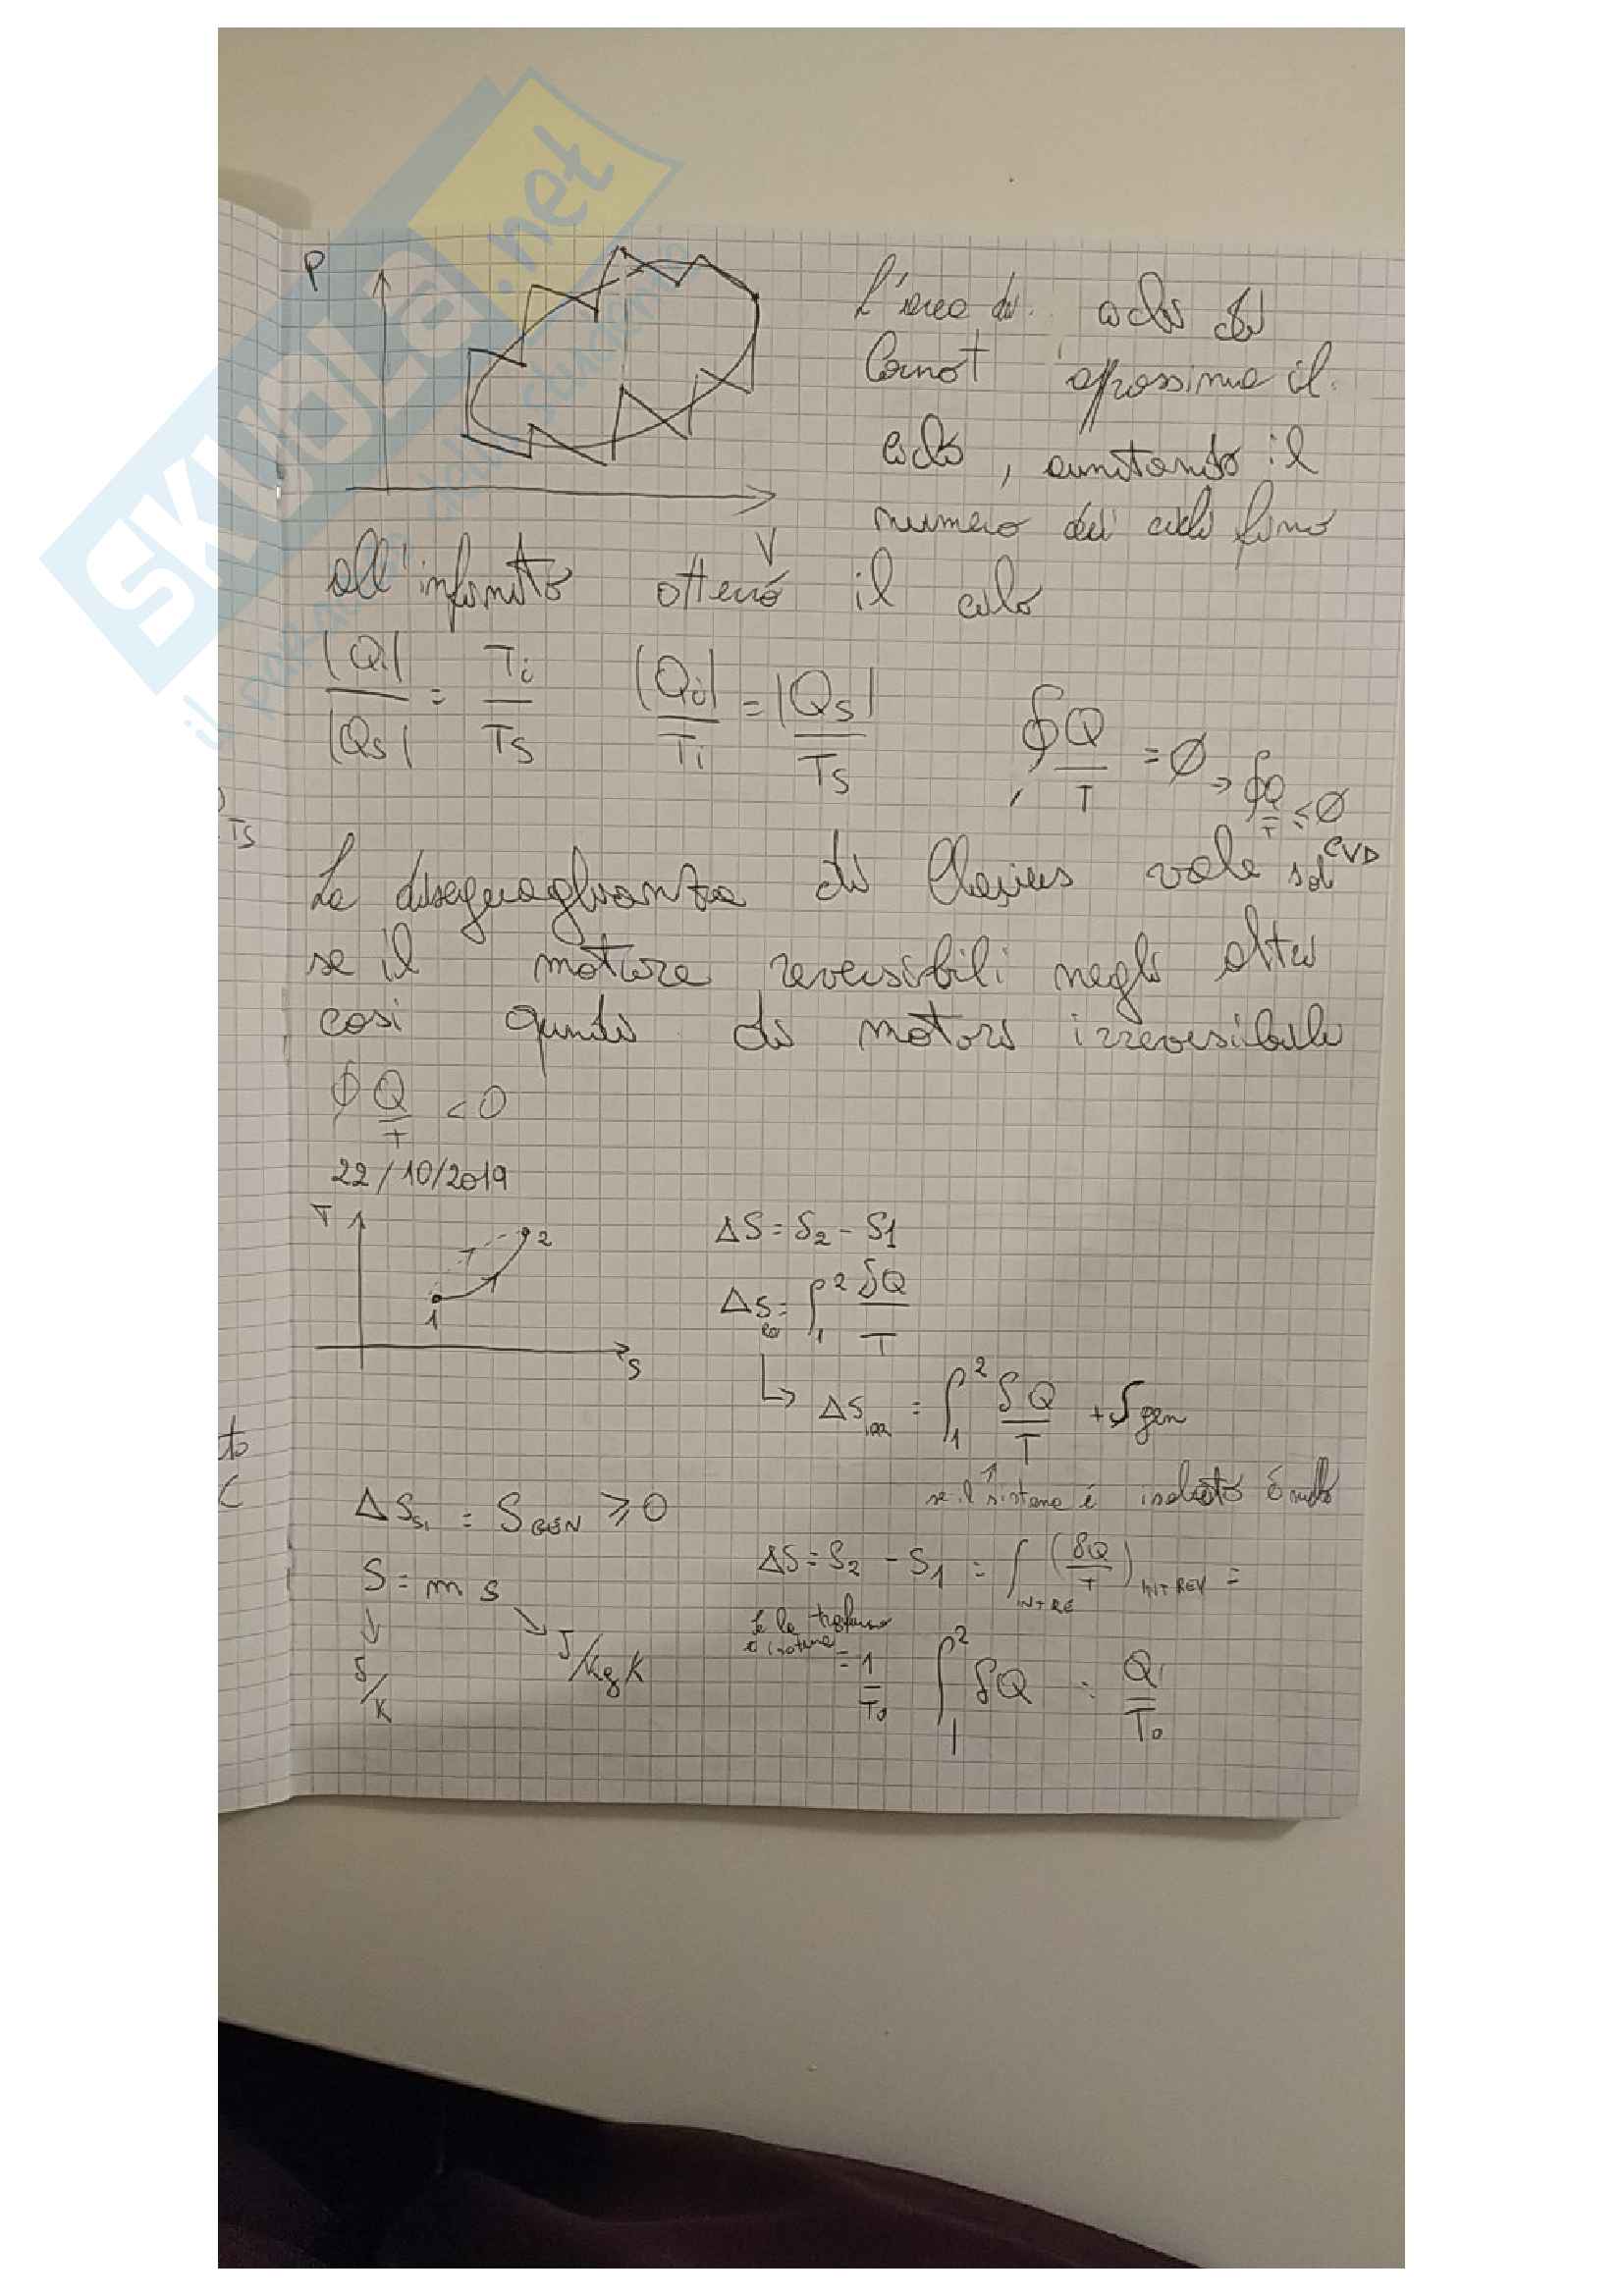 P
L'area dei cicli di
Carnot approssima il
ciclo, aumentando il
numero dei cicli fino
V
all'infinito otterrò il ciclo
|Qi| / |Qs| = Ti / Ts    |Qi| / Ti = |Qs| / Ts    ∮ Q / T = Ø → ∮ Q / T ≤ Ø
CVD
La diseguaglianza di Clausius vale sol
se il motore reversibili negli altri
casi quindi di motori irreversibili
∮ Q / T < 0
22/10/2019
T
2
1
S
ΔS = S2 - S1
ΔS = ∫1^2 δQ / T
↳ ΔS irr = ∫1^2 δQ / T + S gen
se il sistema è isolato è nullo
ΔS si = S GEN ≥ 0
ΔS = S2 - S1 = ∫ INT RE (δQ / T) INT REV =
S = m s
J/K
J/kg K
Se la
= 1 / T0 ∫1^2 δQ = Q / T0
TS
to
C
SKUOLA.net